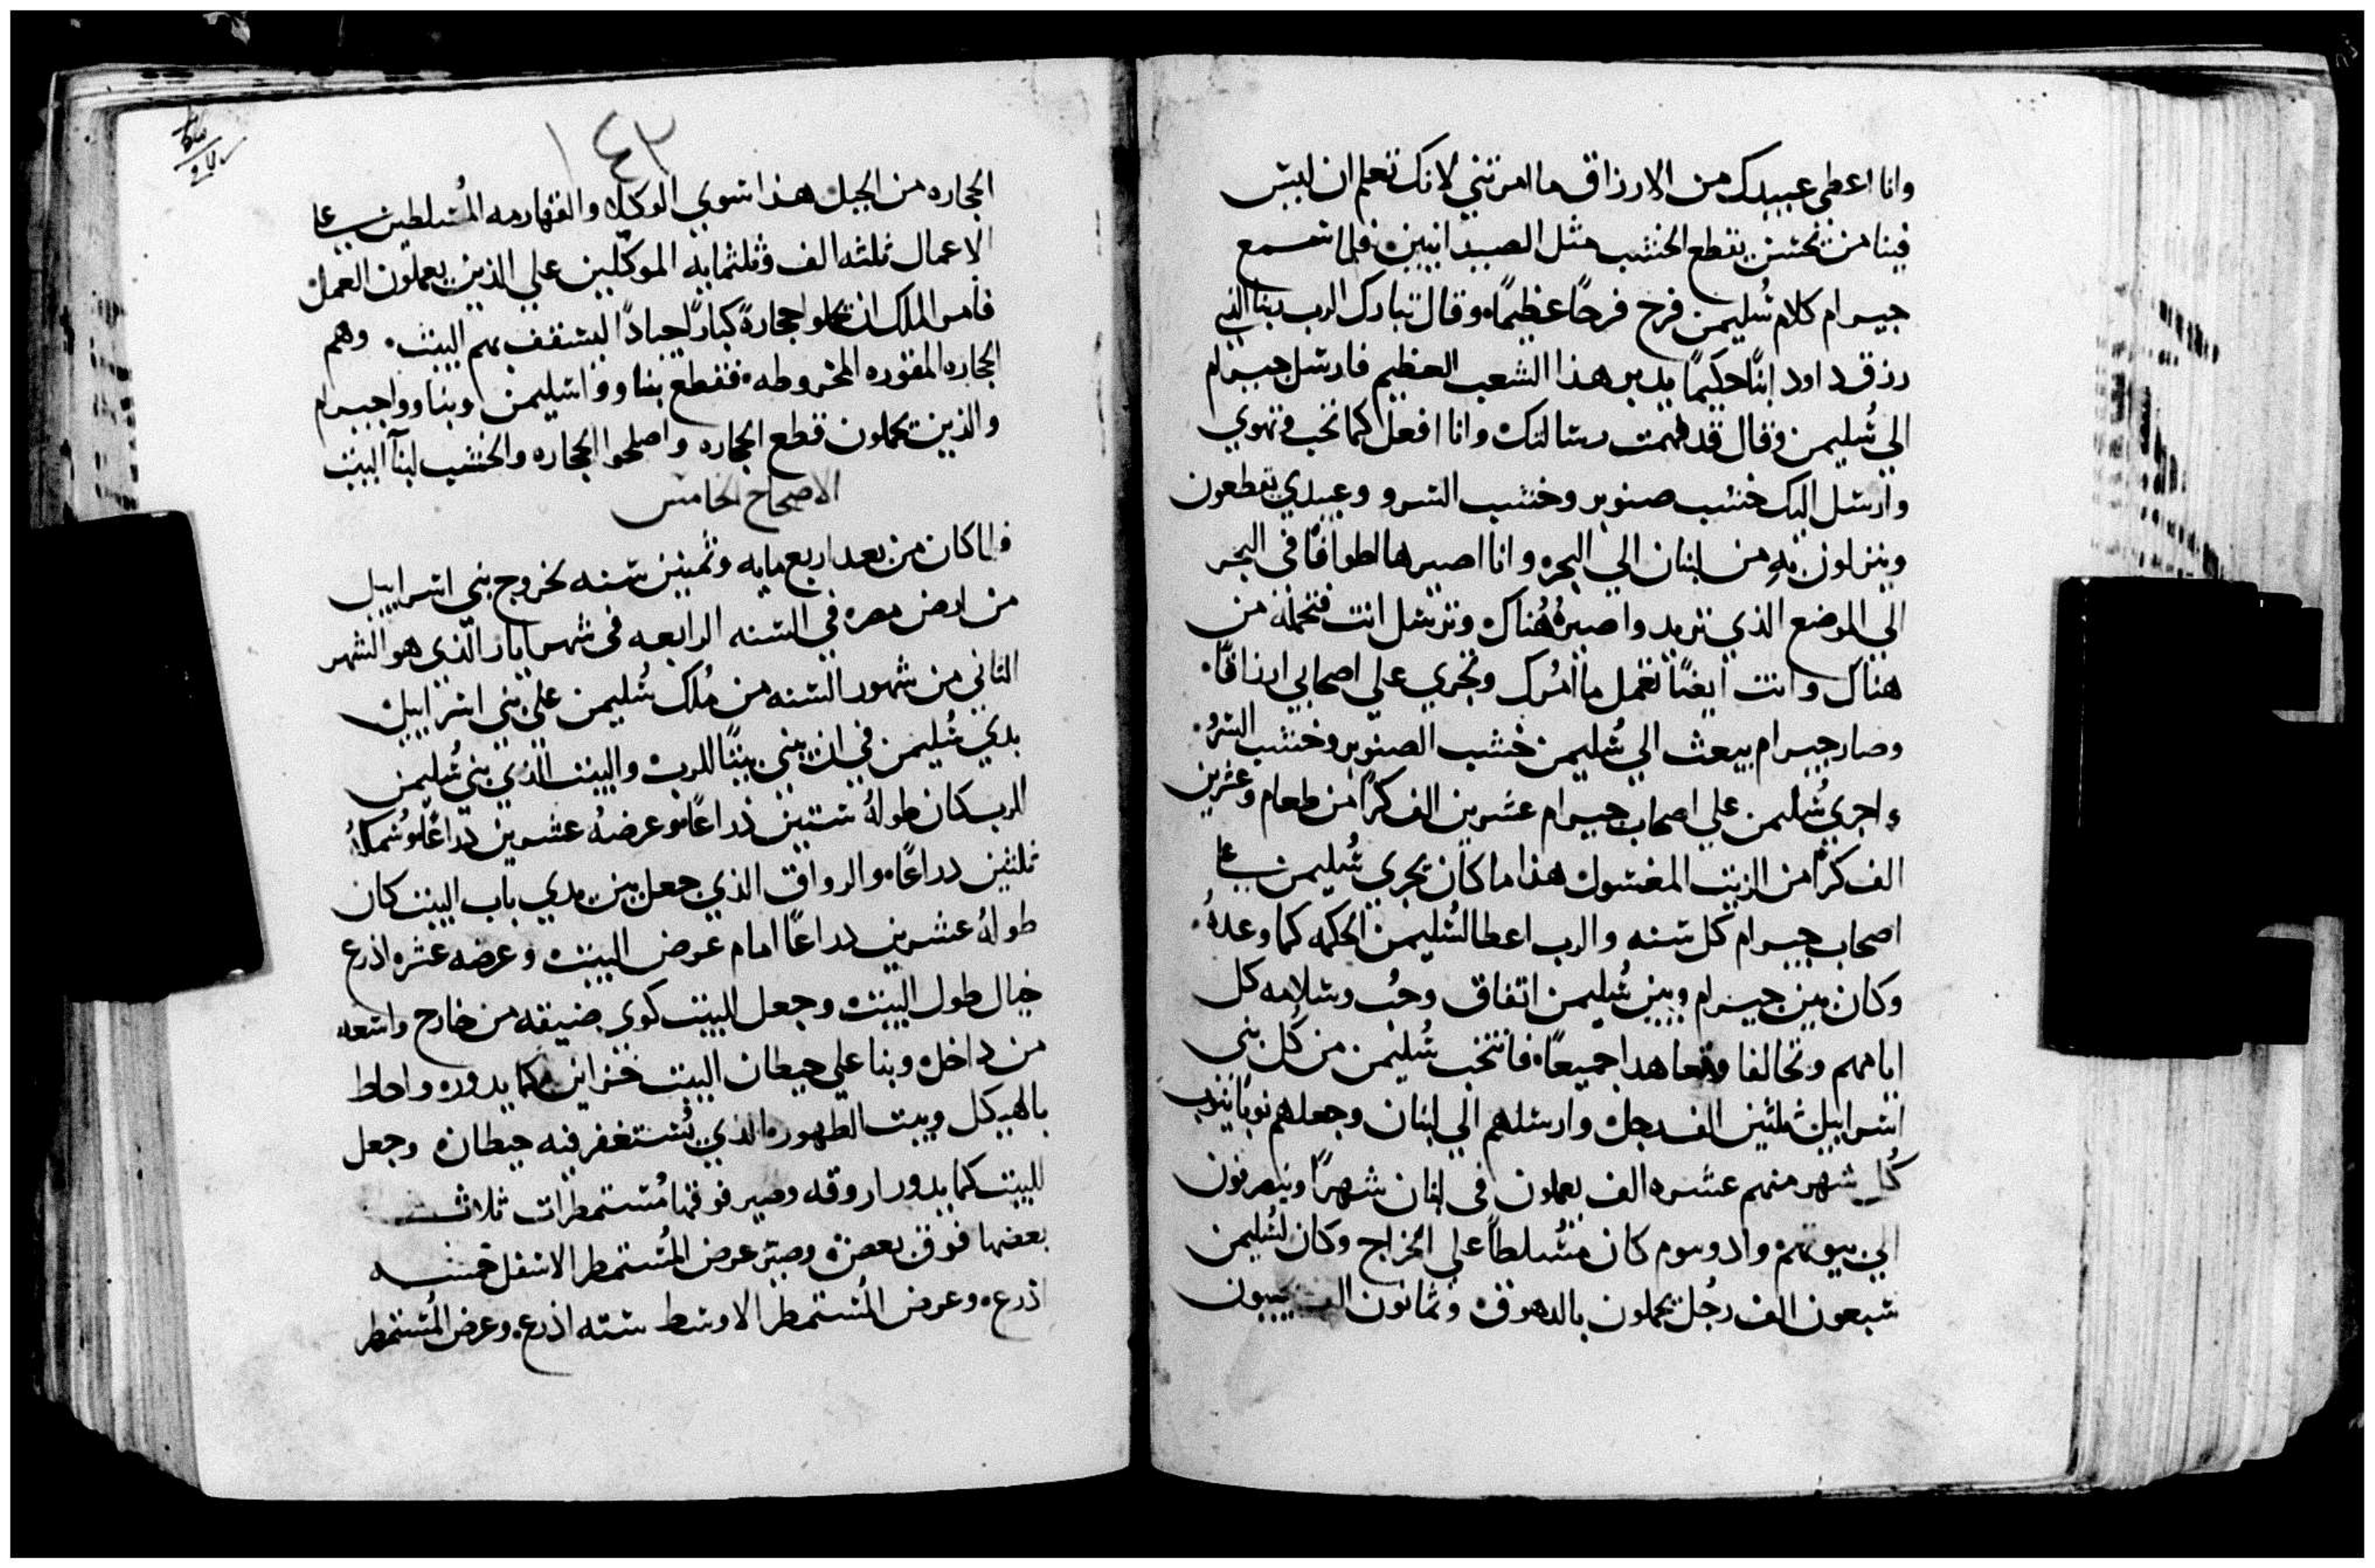 وانا اعطي عبيدك من الارزاق ما امرتني لانك تعلم ان ليس
فينا من يحسن يقطع الخشب مثل الصيدانيين فلما سمع
جيرام كلام سُليمن فرح فرحًا عظيمًا وقال تبارك الرب ربنا الذي
رزق داود ابنًا حكيمًا يدبر هذا الشعب العظيم فارسل جيرام
الي سُليمن وقال قد فهمت رسالتك وانا افعل كما تحب وتهوي
وارسل اليك خشب صنوبر وخشب السرو وعبيدي يقطعون
وينزلون به من لبنان الي البحر وانا اصيرها اطوافًا في البحر
الي الموضع الذي تريد واصيرهُ هُناك وترسل انت فتحمله من
هناك وانت ايضًا تفعل ما آمُرك وتجري علي اصحابي ارزاقًا
وصار جيرام يبعث الي سُليمن خشب الصنوبر وخشب السرو
واجري سُليمن علي اصحاب جيرام عشرين الف كرًا من طعام وعشرين
الف كرًا من الزيت المغسول هذا ما كان يجري سُليمن علي
اصحاب جيرام كل سنه والرب اعطا لسُليمن الحكمه كما وعدهُ
وكان بين جيرام وبين سُليمن اتفاق وحُب وسلامه كل
ايامهم وتحالفا وتعاهدا جميعًا فانتخب سُليمن من كُل بني
اسراييل ثلثين الف رجل وارسلهم الي لبنان وجعلهم نوبًا ينوب
كُل شهر منهم عشره الف يعملون في لبنان شهرًا وينصرفون
الي بيوتهم وادونيرم كان مُسلطًا علي الخراج وكان لسُليمن
سبعون الف رجُل يحملون بالدهوق وثمانون الف
١٤٢
الحجاره من الجبل هذا سوي الوكلا والقهارمه المُسلطين علي
الاعمال ثلثه الف وثلثمايه الموكلين علي الذين يعملون العمل
فامر الملك ان حجارةً كبارًا جيادًا ليسقف بهم البيت وهم
الحجاره المنقوره المخروطه فقطع بناووا سليمن وبناووا جيرام
والذين يحملون قطع الحجاره واصلحوا الحجاره والخشب لبنآ البيت
الاصحاح الخامس
فلما كان من بعد اربع مايه وثمنين سنه لخروج بني اسراييل
من ارض مصر في السنه الرابعه في شهر ايار الذي هو الشهر
الثاني من شهور السنه من مُلك سُليمن علي بني اسراييل
بدي سُليمن في ان يبني بيتًا للرب والبيت الذي بني سُليمن
للرب كان طولهُ ستين ذراعًا وعرضهُ عشرين ذراعًا وسُمكهُ
ثلثين ذراعًا والرواق الذي جعل بين يدي باب البيت كان
طولهُ عشرين ذراعًا امام عرض البيت وعرضه عشره اذرع
حيال طول البيت وجعل للبيت كوي ضيقه من خارج واسعه
من داخل وبنا علي حيطان البيت خزاين كما يدوره واحاط
بالهيكل وبيت الطهور الذي يُستغفر فيه حيطان وجعل
للبيت كما يدور اروقه وصير فوقها مُستمطرات ثلاث
بعضها فوق بعض وصير عرض المُستمطر الاسفل خمسه
اذرع وعرض المُستمطر الاوسط سته اذرع وعرض المُستمطر